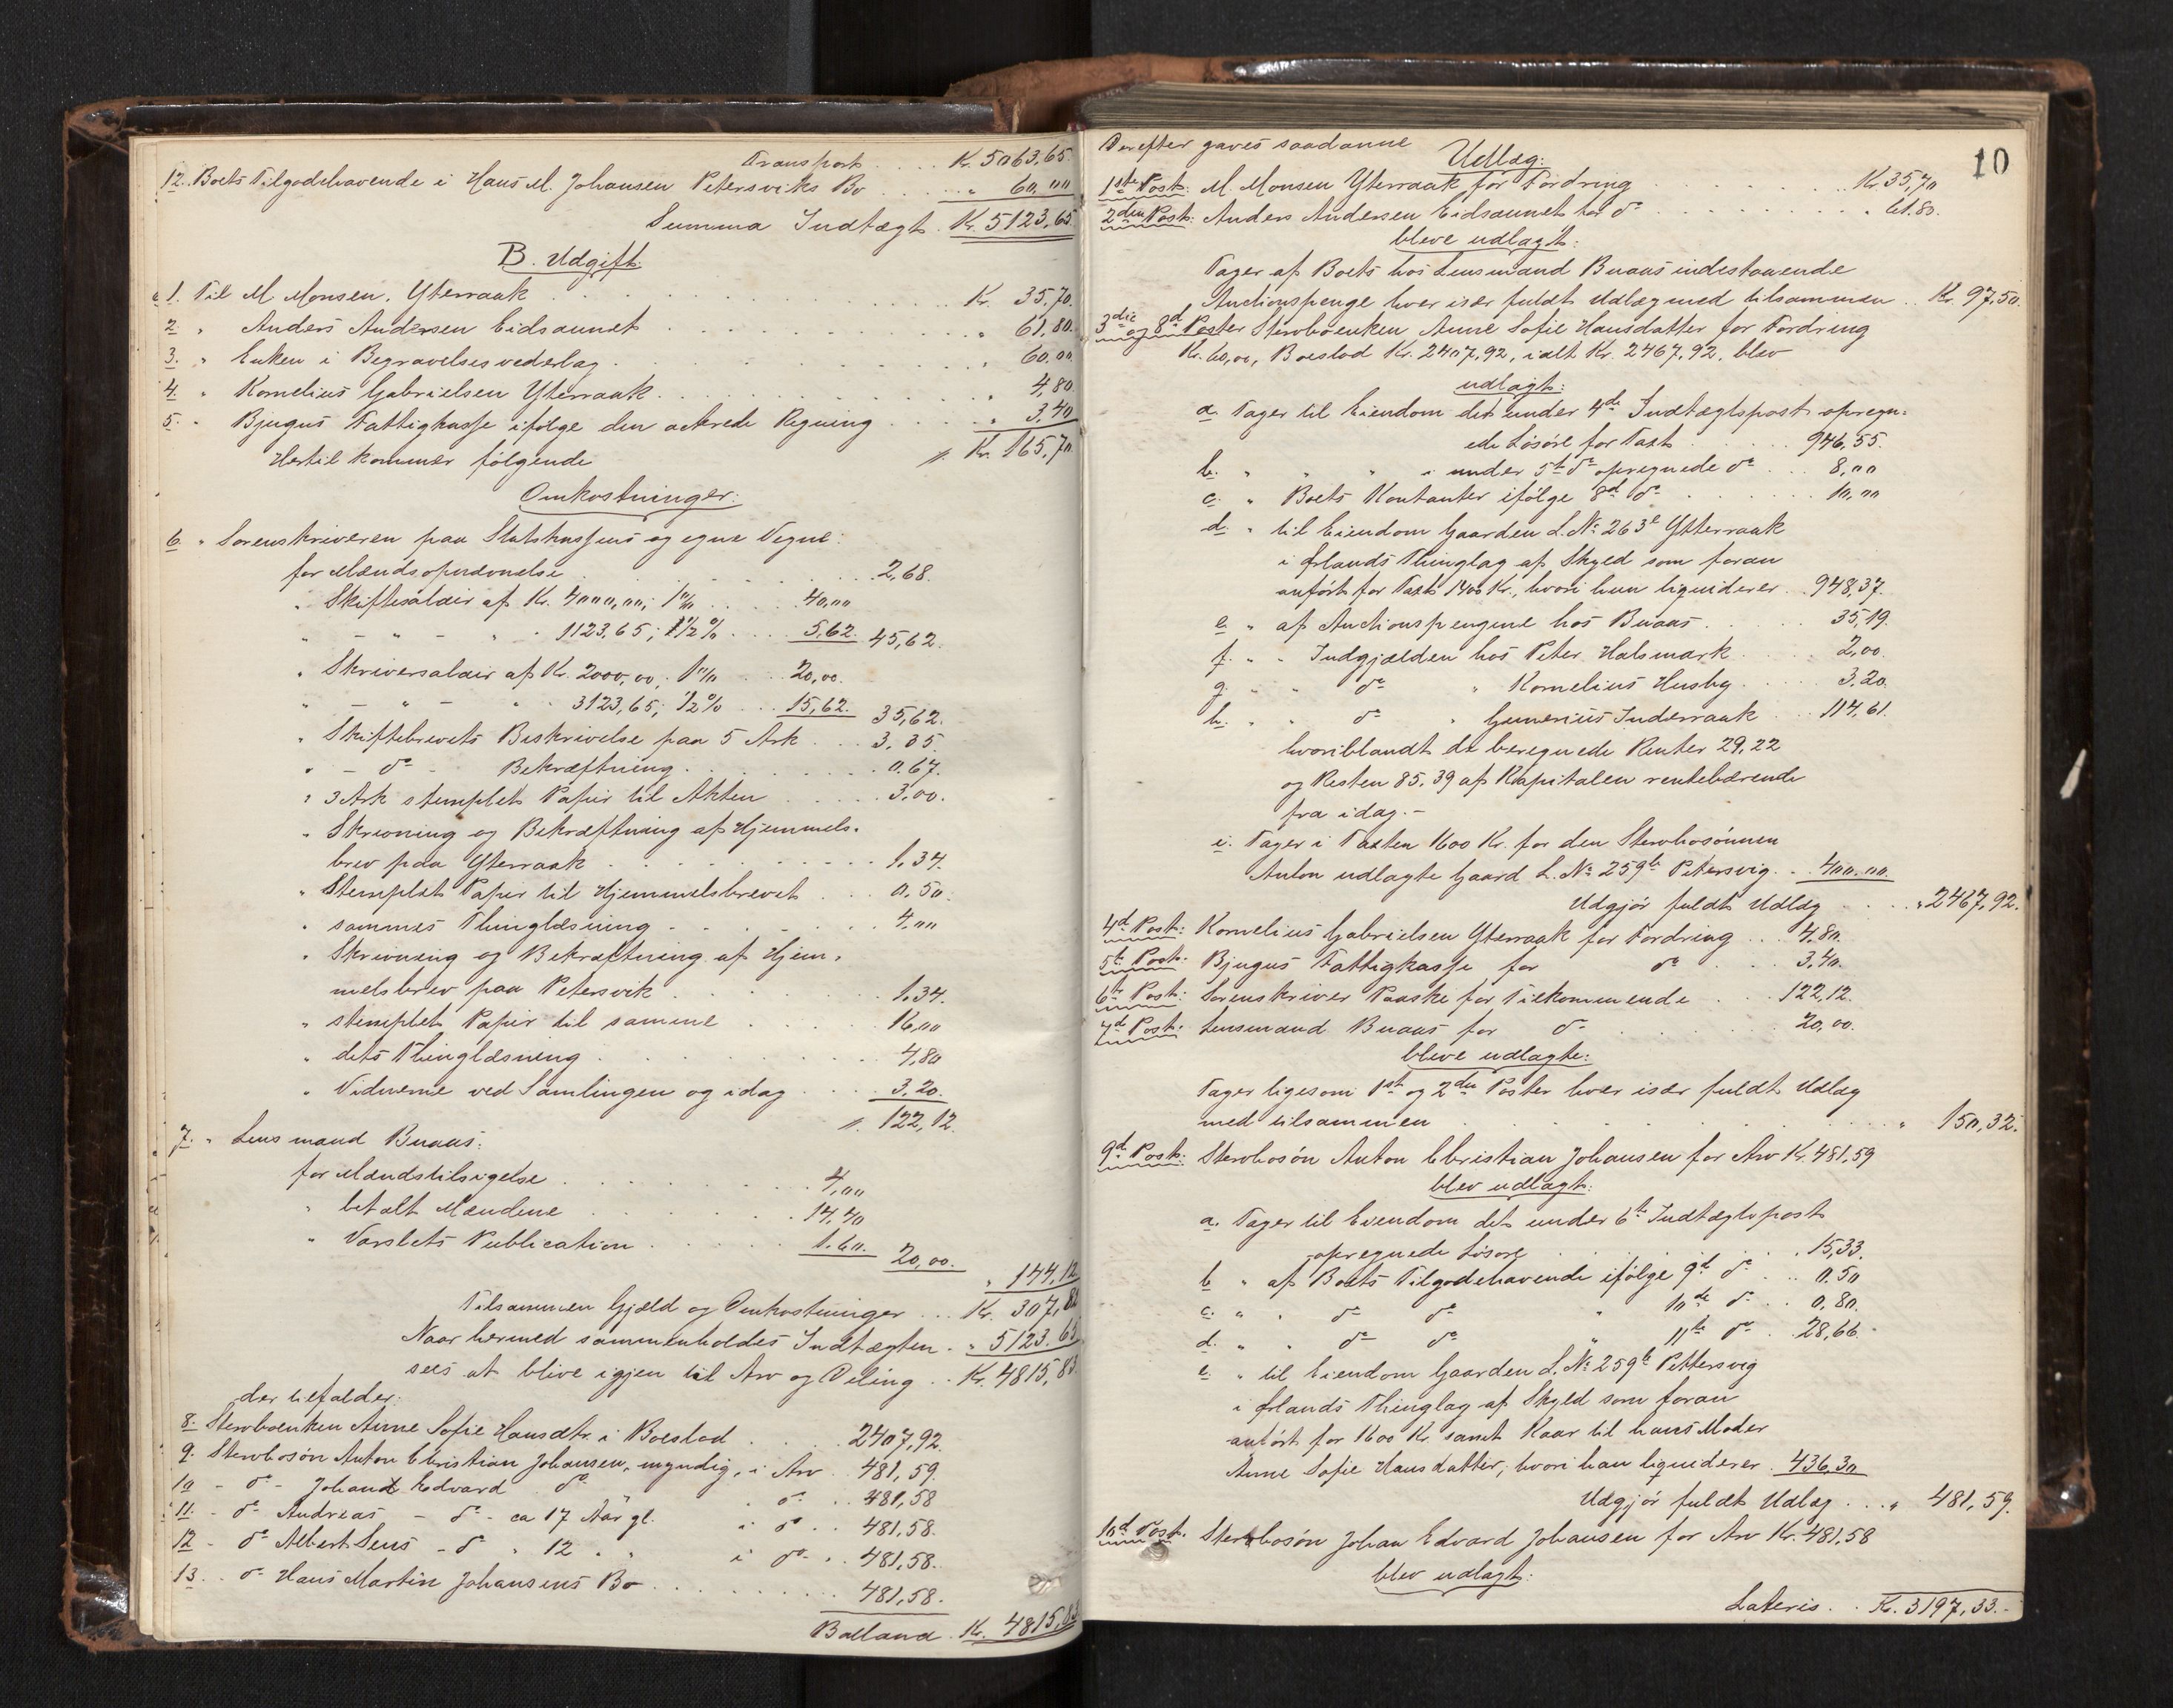 Transport . . . . Kr. 5063,65.
12. Boets Tilgodehavende i Hans M. Johansen Petersviks Bo . . . . „ 60,00
Summa Indtægt . Kr. 5123,65.
B. Udgift.
1. Til M. Monsen, Yterraak . . . . Kr. 35,70.
2. „ Anders Andersen Eidsaunet . . . . „ 61,80.
3. „ Enken i Begravelsesvederlag . . . . „ 60,00
4. „ Kornelius Gabrielsen Yterraak . . . . „ 4,80.
5. „ Bjugns Fattigkasse ifølge den acterede Regning . . . . „ 3,40
Hertil kommer følgende Kr. 165,70
Omkostninger:
6 „ Sorenskriveren paa Statskassens og egne Vegne:
for Mændsopnævnelse . . . . 2,68.
„ Skiftesalair af Kr. 4000,00; 1% . . . 40,00
„ - „ - „ „ 1123,65; 1/2 % . . . 5,62. 45,62.
„ Skriversalair af Kr. 2000,00; 1% . . 20,00.
„ - „ - „ „ 3123,65; 1/2 % . . . 15,62. 35,62.
„ Skiftebrevets Beskrivelse paa 5 Ark . . . 3,35.
„ - do - Bekræftning . . . . 0,67.
„ 3 Ark stemplet Papir til Akten . . . . 3,00.
„ Skrivning og Bekræftning af Hjemmels-
brev paa Yterraak . . . . 1,34.
„ Stemplet Papir til Hjemmelsbrevet . . 0,50.
„ sammes Thinglæsning . . . . 4,00
„ Skrivning og Bekræftning af Hjem-
melsbrev paa Petersvik . . . . 1,34.
„ stemplet Papir til samme . . . . 16,00
„ dets Thinglæsning . . . . 4,80
„ Vidnerne ved Samlingen og idag . . . 3,20.
122,12.
7. „ Lensmand Buaas:
for Mændstilsigelse . . . . 4,00
„ betalt Mændene . . . . 14,40
„ Varslets Publication . . . . 1,60. 20,00.
„ 144,12
Tilsammen Gjæld og Omkostninger . . . Kr. 307,82
Naar hermed sammenholdes Indtægten . „ 5123.65
sees at blive igjen til Arv og Deling . . Kr. 4815,83
der tilfalder:
8. Stervboenken Anne Sofie Hansdtr. i Boeslod . . . . 2407,92.
9. Stervbosøn Anton Christian Johansen, myndig, i Arv . 481,59.
10 - do - Johan Edvard do i do . . 481,58
11. - do Andreas - do - ca 17 Aar gl. i do . . 481,58.
12 - do Albert Sens - do „ 12 „ „ i do . . 481,58.
13 . . do Hans Martin Johansens Bo . . . . 481,58.
Ballance . Kr. 4815,83
10
Derefter gaves saadanne
Udlæg:
1ste Post: M. Monsen Yterraak for Fordring . . . . Kr. 35,70
2den Post: Anders Andersen Eidsaunet for do . . . . „ 61.80.
bleve udlagt:
Tager af Boets hos Lensmand Buaas indestaaende
Auctionspenge hver især fuldt Udlæg med tilsammen . . Kr. 97,50.
3die og 8d Poster Stervboenken Anne Sofie Hansdatter for Fordring
Kr. 60,00, Boeslod Kr. 2407,92, ialt Kr. 2467,92, blev
udlagt:
a. Tager til Eiendom det under 4de Indtægtspost opregn-
ede Løsøre for Taxt . . . . 946,55.
b. „ „ „ i under 5te do opregnede do . . . 8,00
c. „ Boets Kontanter ifølge 8d do . . . . 10,00
d. „ til Eiendom Gaarden L. No 263e Ytterraak
i Ørlands Thinglag af Skyld som foran
anført for Taxt 1400 Kr., hvori hun liquiderer . . 948,37.
e „ af Auctionspengene hos Buaas . . . . 35,19.
f. „ „ Indgjælden hos Peter Halsmark . . . . 2,00.
g. „ „ do „ Kornelius Husby . . . . 3,20.
h. „ „ do „ Gunerius Inderraak . . . 114,61.
hvoriblandt de beregnede Renter 29.22
og Resten 85.39 af Kapitalen rentebærende
fra idag. -
i. Tager i Taxten 1600 Kr. for den Stervbosønnen
Anton udlagte Gaard L. No 259b Petersvig . . 400.00.
Udgjør fuldt Udlæg . . . . „ 2467,92.
4d Post: Kornelius Gabrielsen Yterraak for Fordring . . . 4,80.
5te Post: Bjugns Fattigkasse for do . . . 3,40.
6te Post: Sorenskriver Paaske for Tilkommende . . . 122,12.
7d Post: Lensmand Buaas for do . . . . 20,00.
bleve udlagte:
Tager ligesom 1st og 2den Poster hver især fuldt Udlæg
med tilsammen . . . . „ 150,32.
9d Post: Stervbosøn Anton Christian Johansen for Arv Kr. 481,59
blev udlagt:
a. Tager til Eiendom det under 6te Indtægtspost
opregnede Løsøre . . . . 15,33.
b „ af Boets Tilgodehavende ifølge 9d do . . . 0.50
c. „ „ do do „ 10de do . . 0,80.
d. „ „ do do „ 11te do . 28,66.
e. „ til Eiendom Gaarden L. No 259b Pettersvig
i Ørlands Thinglag af Skyld som foran
anført for 1600 Kr. samt Kaar til hans Moder
Anne Sofie Hansdatter, hvori han liquiderer . 436,30
Udgjør fuldt Udlæg . . . „ 481,59.
10d Post. Stervbosøn Johan Edvard Johansen for Arv Kr. 481,58
blev udlagt:
Lateris . . Kr. 3197,33.-